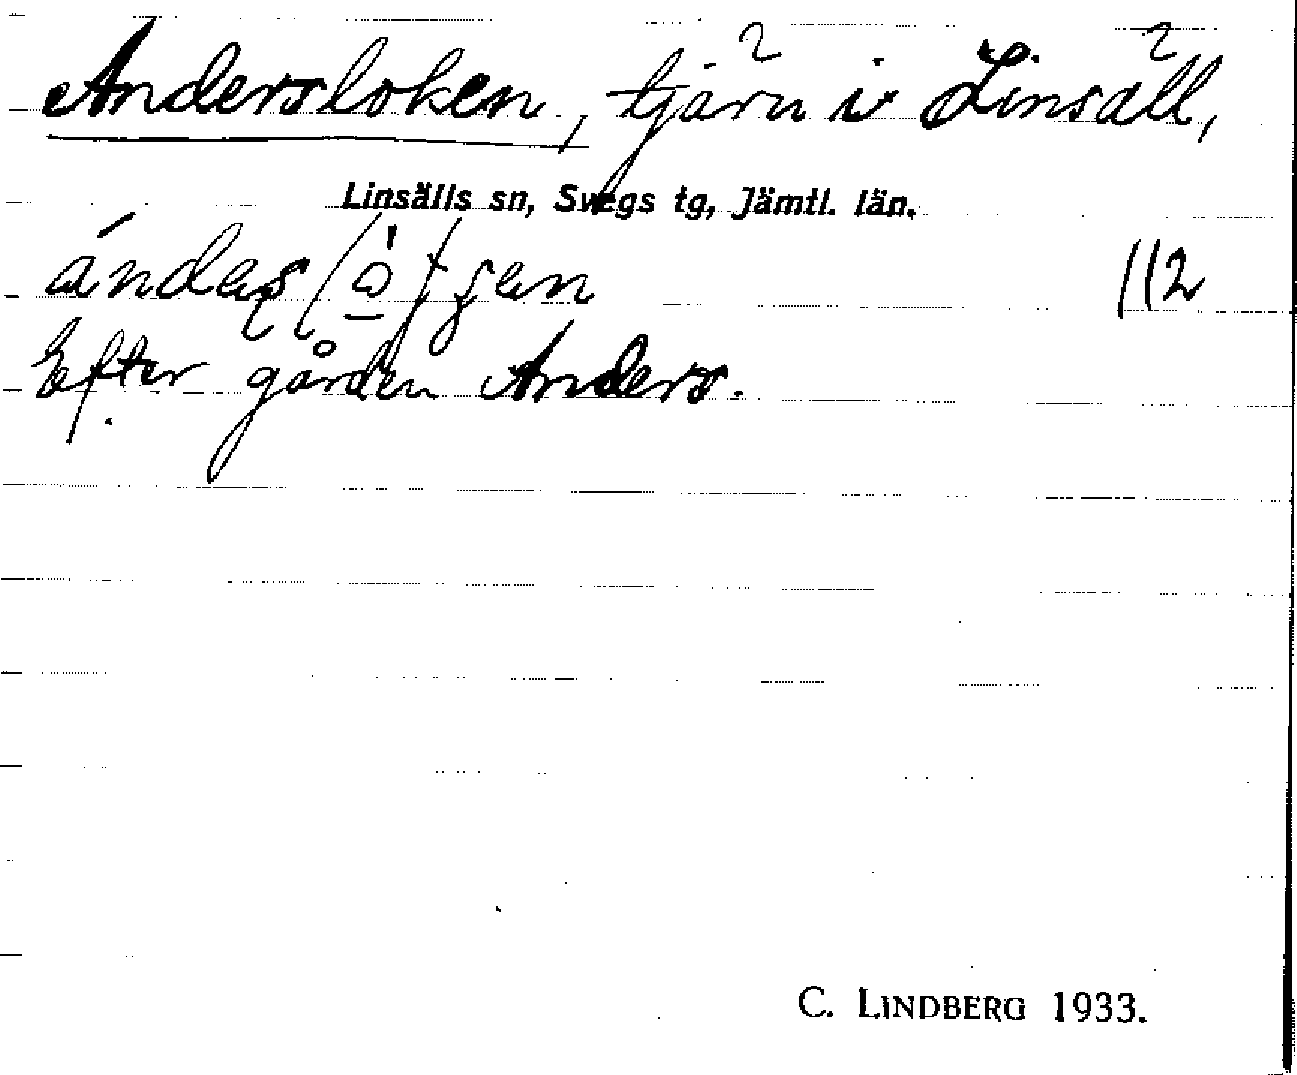 Andersloken, tjärn i Linsäll,
Linsälls sn, Svegs tg, Jämtl. län.
112
Efter gården Anders.
C. LINDBERG 1933.